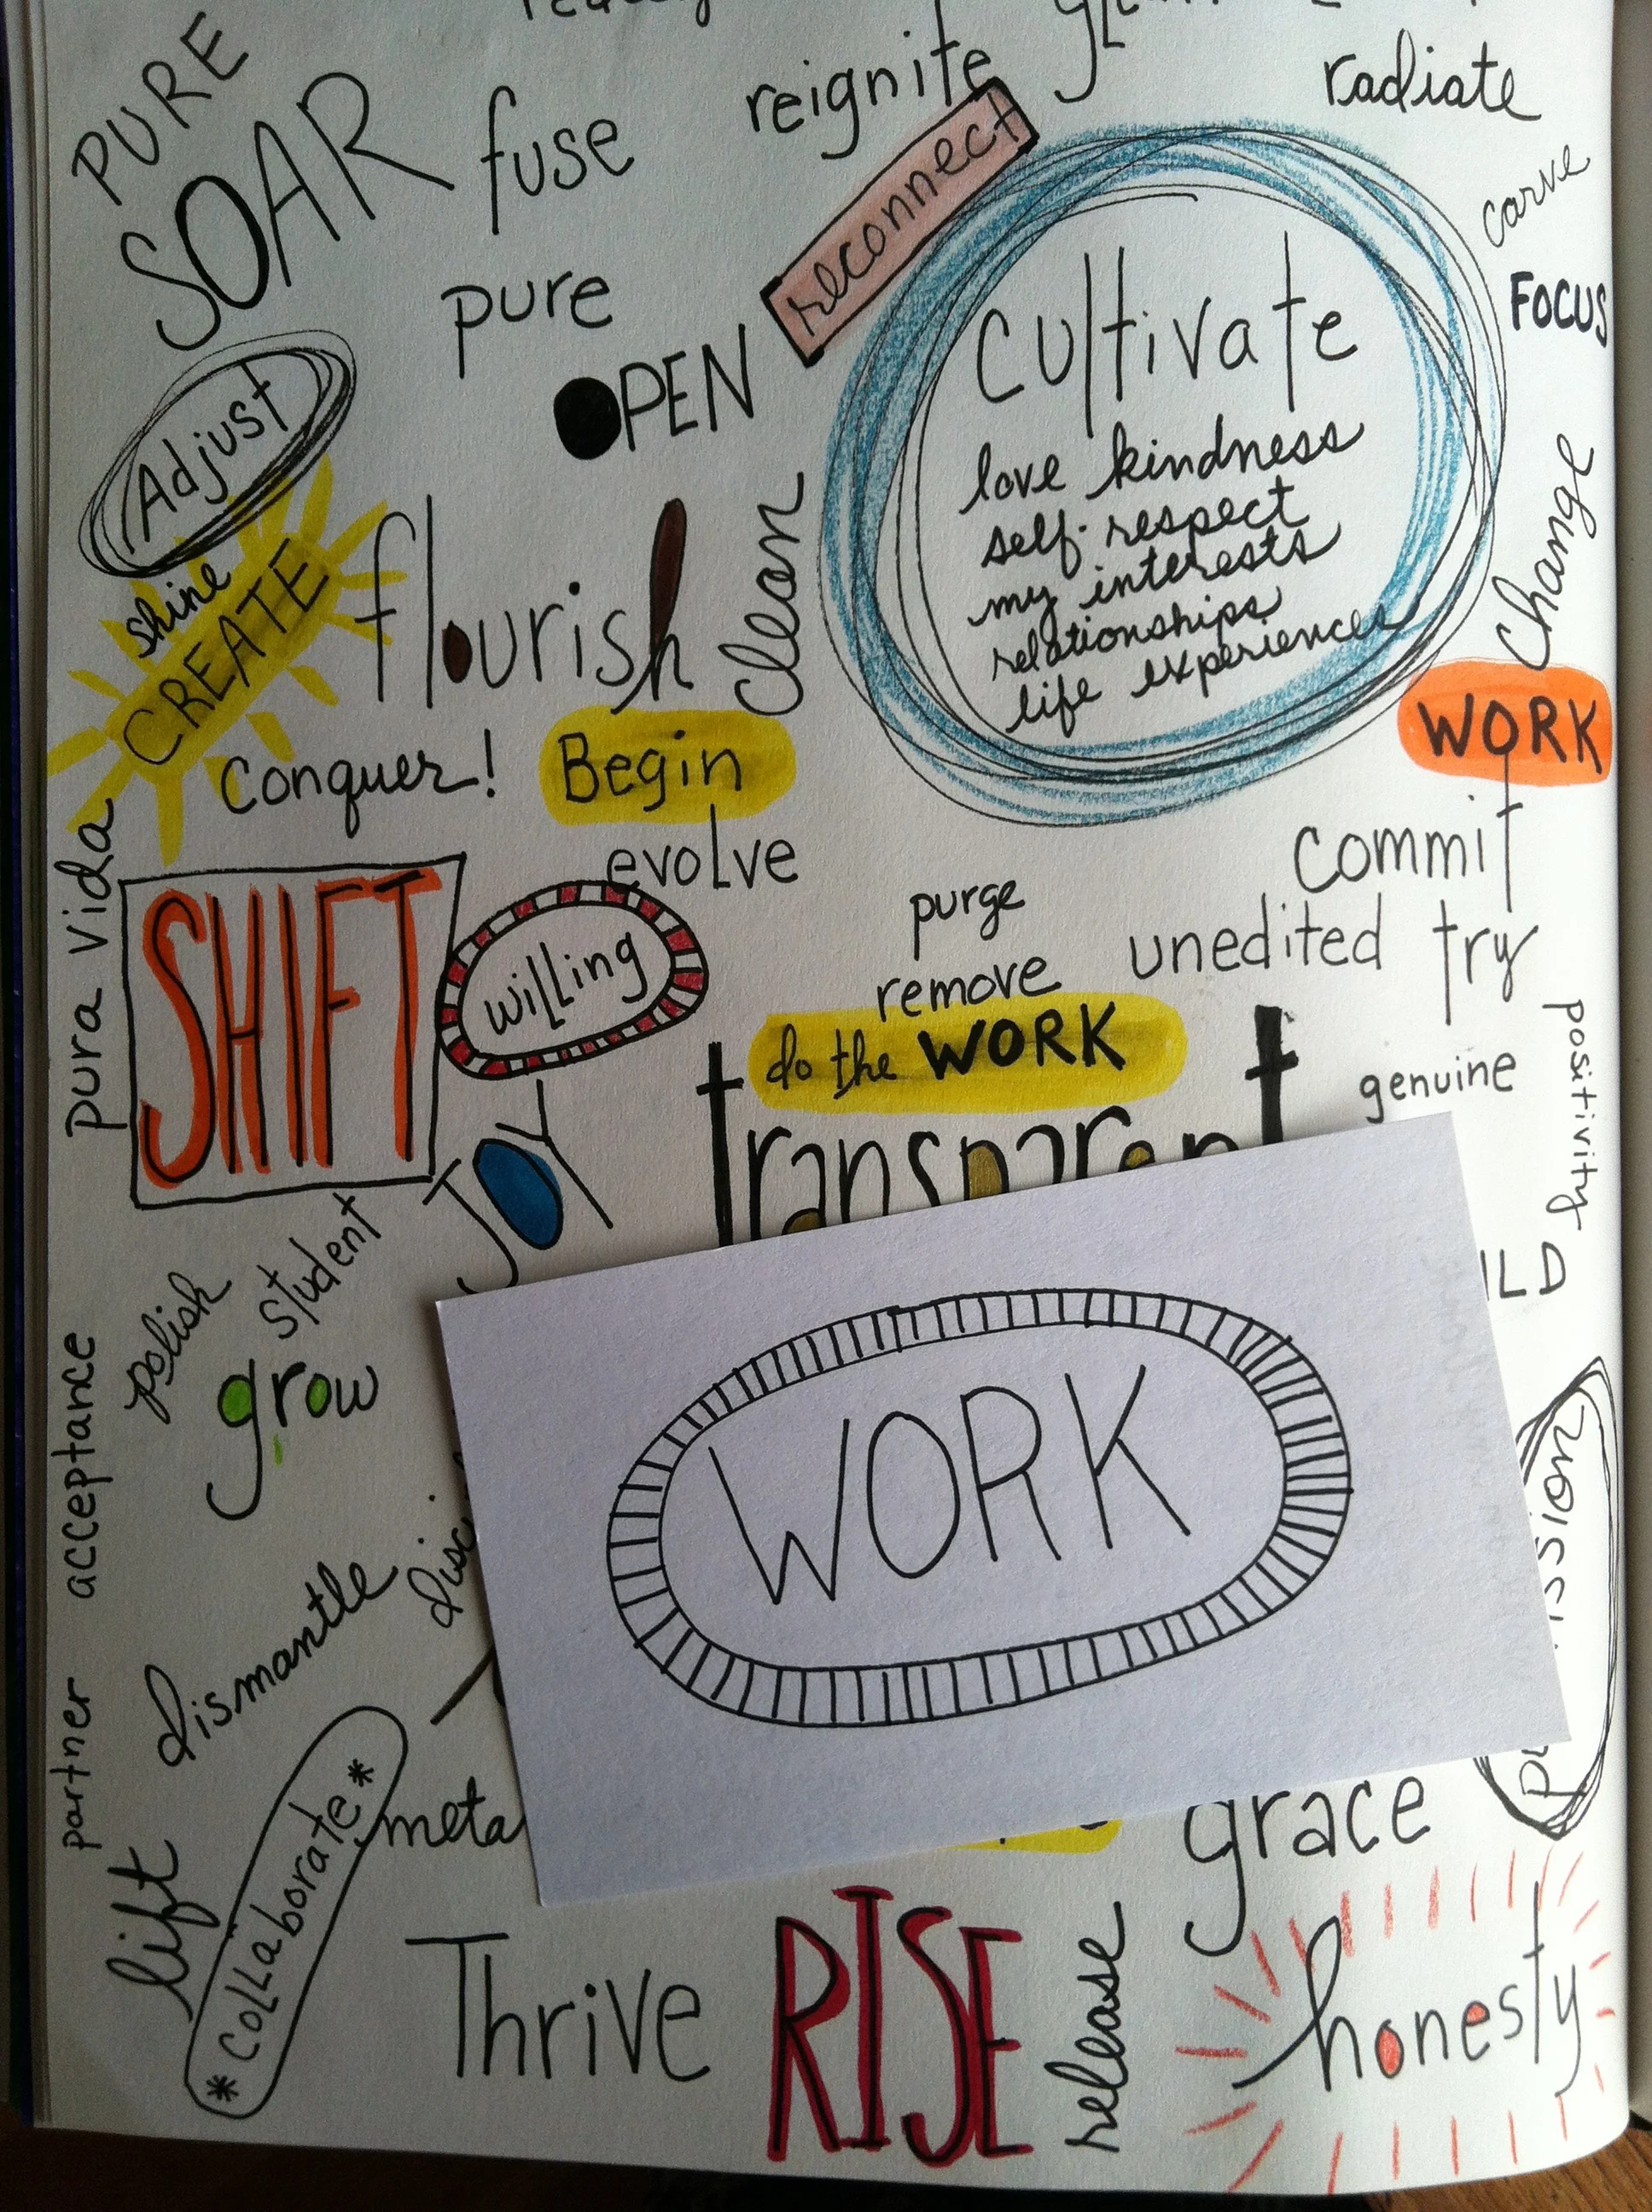 PURE
SOAR
fuse
reignite
radiate
reconnect
carve
pure
FOCUS
OPEN
Adjust
Cultivate
love kindness
self-respect
my interests
relationships
life experiences
shine
CREATE
flourish
clean
change
Conquer!
Begin
WORK
evolve
commit
pura vida
SHIFT
willing
purge
unedited
try
remove
do the WORK
positivity
genuine
transparent
JOY
student
polish
grow
acceptance
WORK
dismantle
partner
lift
*collaborate*
grace
Thrive
RISE
release
honesty